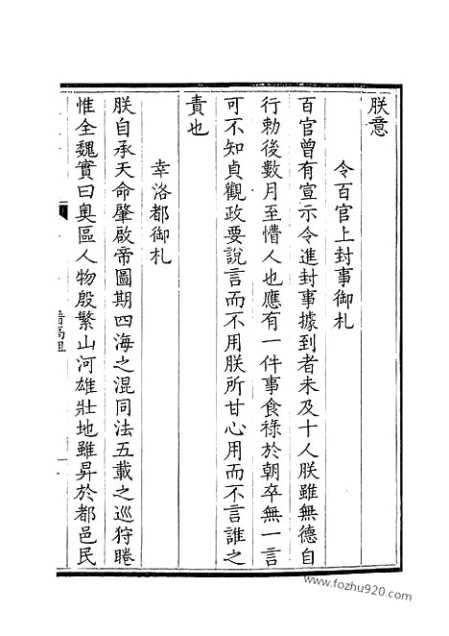 朕意
令百官上封事御札
百官曾有宣示令進封事據到者未及十人朕雖無德自
行勅後數月至懵人也應有一件事食祿於朝卒無一言
可不知貞觀政要說言而不用朕所甘心用而不言誰之
責也
幸洛都御札
朕自承天命肇啟帝圖期四海之混同法五載之巡狩睠
惟全魏實曰奧區人物殷繁山河雄壯地雖昇於都邑民
www.fozhu920.com